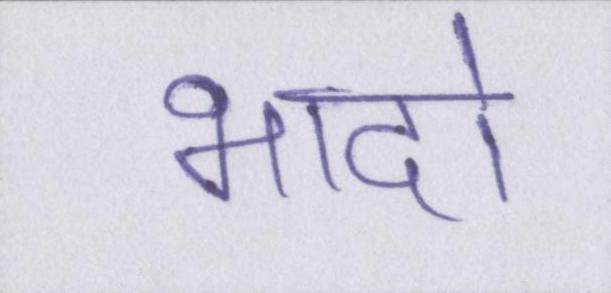 भादो